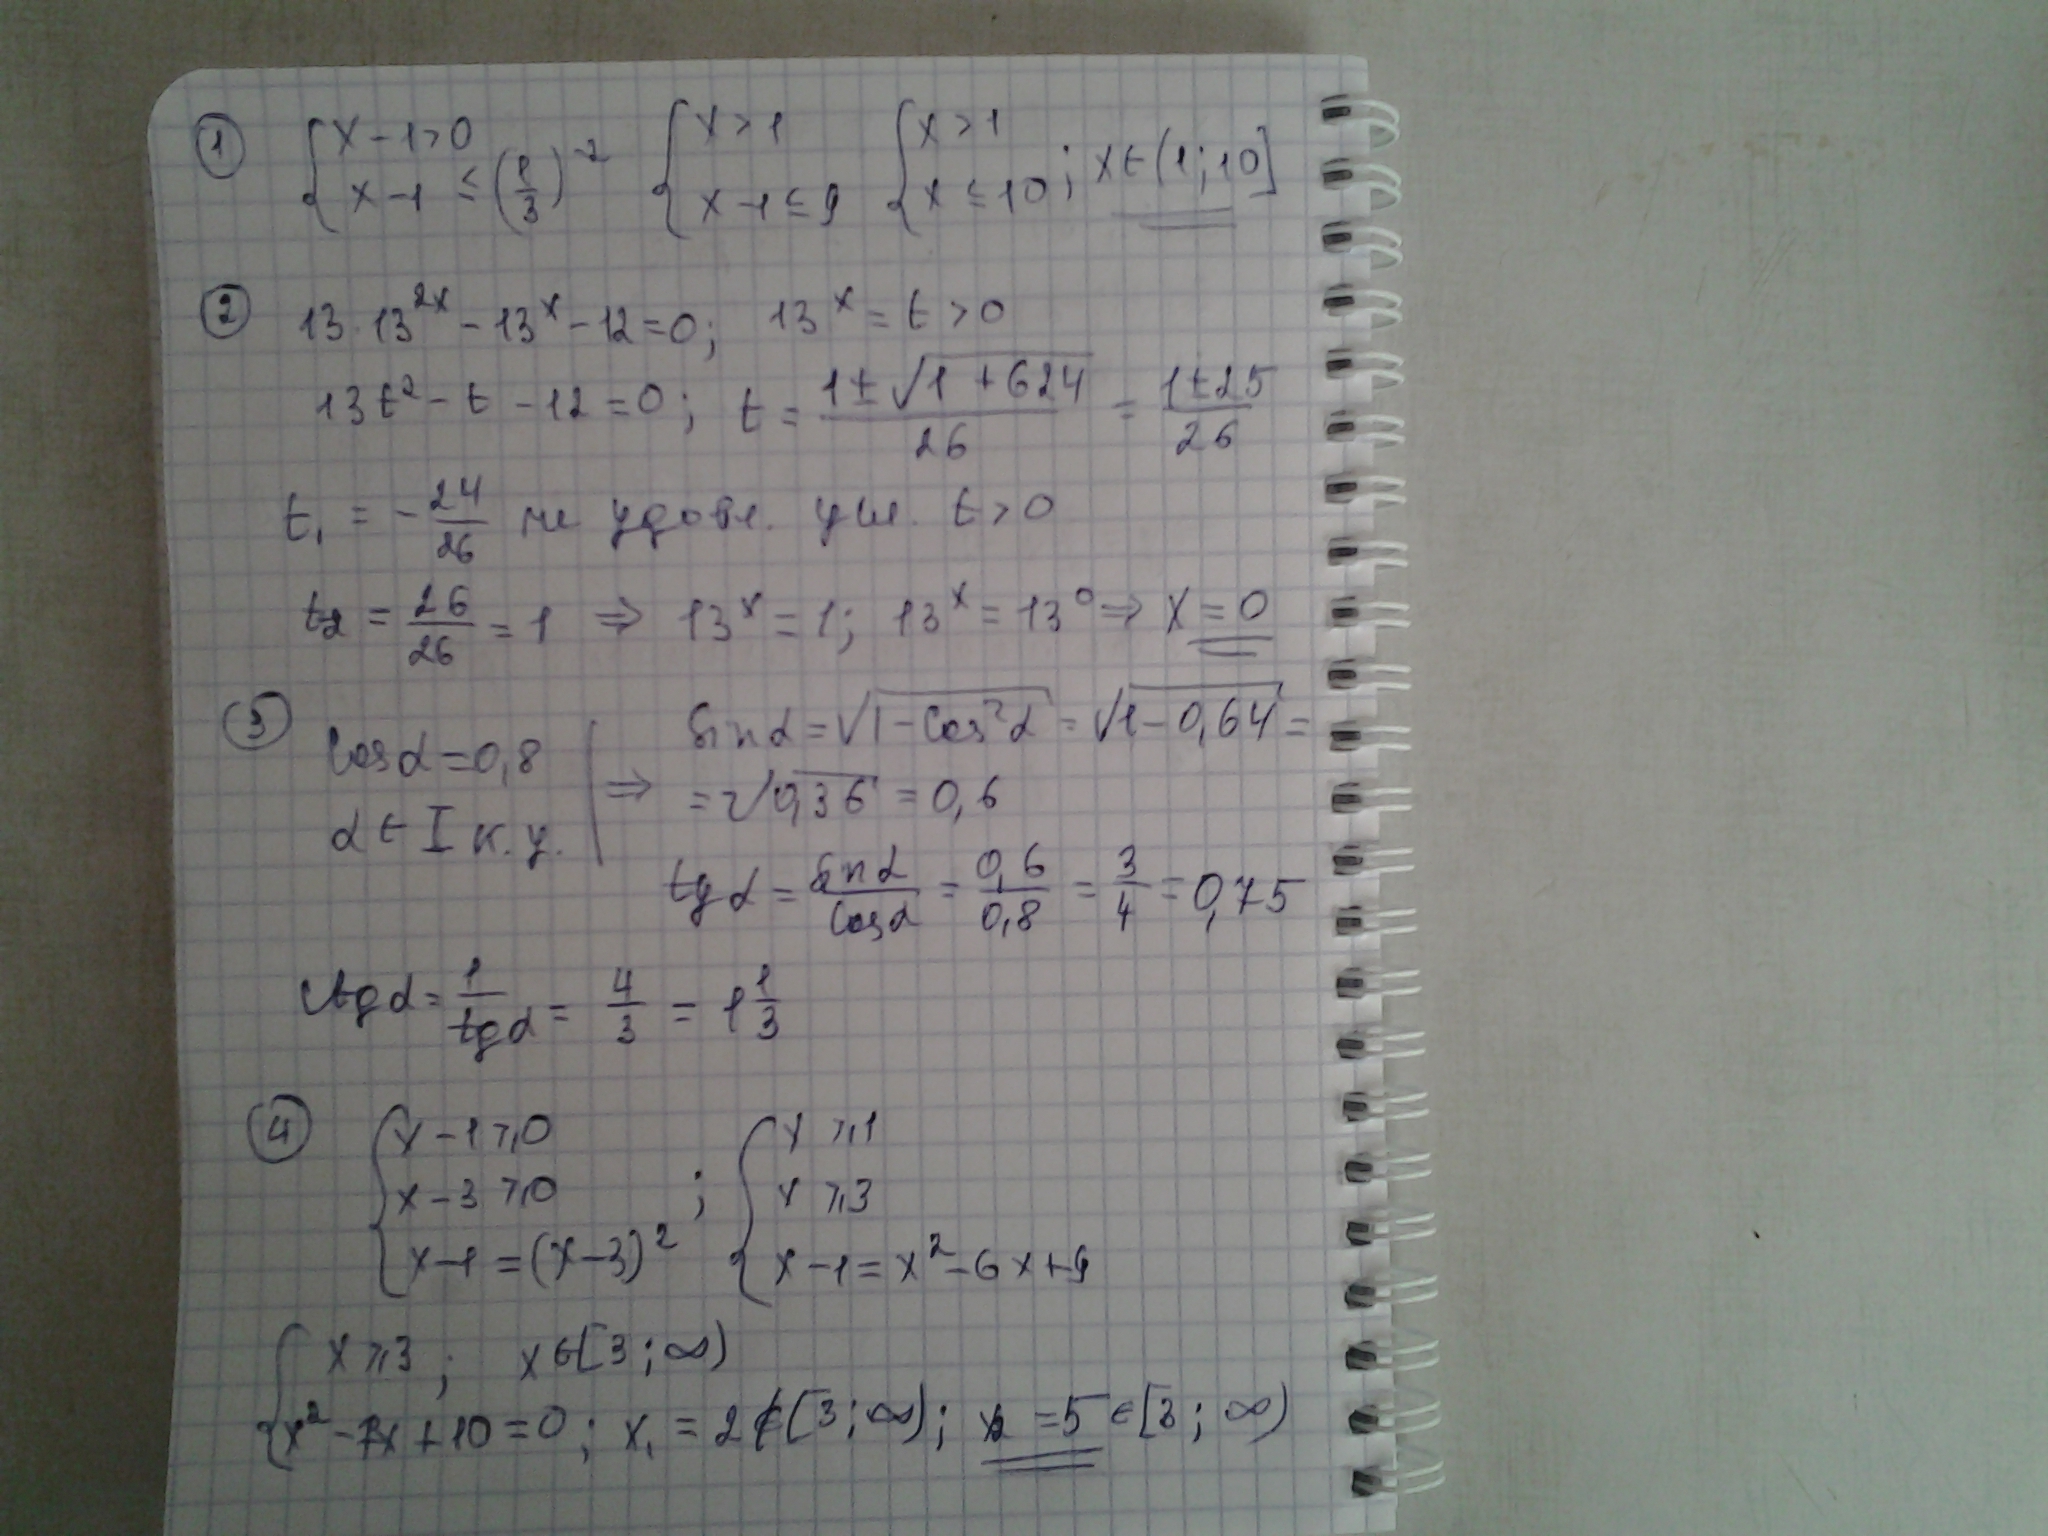 ① { x - 1 > 0   { x > 1   { x > 1
{ x - 1 ≤ (1/3)^-2   { x - 1 ≤ 9   { x ≤ 10 ; x ∈ (1; 10]
② 13·13^2x - 13^x - 12 = 0;   13^x = t > 0
13t² - t - 12 = 0;   t = (1 ± √(1 + 624))/26 = (1 ± 25)/26
t₁ = -24/26 не удовл. усл. t > 0
t₂ = 26/26 = 1 ⇒ 13^x = 1; 13^x = 13^0 ⇒ x = 0
③ cos α = 0,8 | ⇒ sin α = √(1 - cos²α) = √(1 - 0,64) =
α ∈ I к.у. | = √0,36 = 0,6
tg α = sin α/cos α = 0,6/0,8 = 3/4 = 0,75
ctg α = 1/tg α = 4/3 = 1 1/3
④ { x - 1 ≥ 0   { x ≥ 1
{ x - 3 ≥ 0 ;   { x ≥ 3
{ x - 1 = (x - 3)²   { x - 1 = x² - 6x + 9
{ x ≥ 3 ;   x ∈ [3; ∞)
{ x² - 7x + 10 = 0; x₁ = 2 ∉ [3; ∞); x₂ = 5 ∈ [3; ∞)